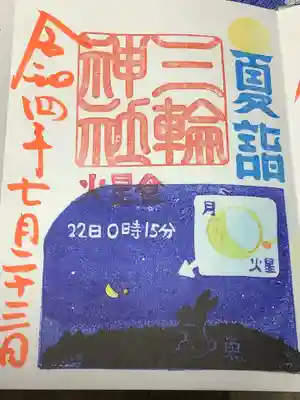 夏詣
三輪
神社
令和四年七月二十三日
火星食
22日0時15分
月
火星